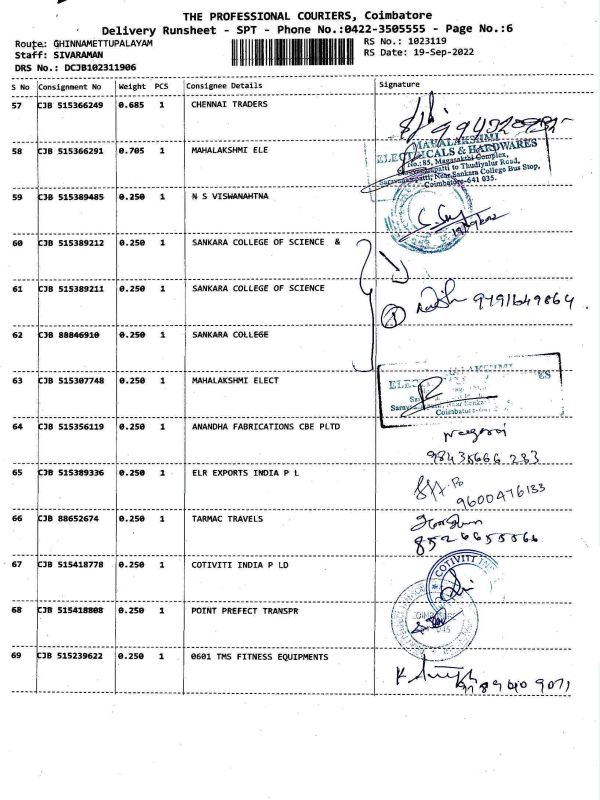 THE PROFESSIONAL COURIERS, Coimbatore
Delivery Runsheet - SPT - Phone No.:0422-3505555 - Page No.:6
Route: GHINNAMETTUPALAYAM
RS No.: 1023119
Staff: SIVARAMAN
RS Date: 19-Sep-2022
DRS No.: DCJB102311906
S No Consignment No Weight PCS Consignee Details Signature
57 CJB 515366249 0.685 1 CHENNAI TRADERS
58 CJB 515366291 0.705 1 MAHALAKSHMI ELE
MAHALAKSHMI
ELECTRICALS & HARDWARES
No.:85, Magasakthi Complex,
Saravanampatti to Thudiyalur Road,
Saravanampatti, Near Sankara College Bus Stop,
Coimbatore-641 035.
59 CJB 515389485 0.250 1 N S VISWANAHTNA
60 CJB 515389212 0.250 1 SANKARA COLLEGE OF SCIENCE &
61 CJB 515389211 0.250 1 SANKARA COLLEGE OF SCIENCE
9791649864
62 CJB 88846910 0.250 1 SANKARA COLLEGE
63 CJB 515307748 0.250 1 MAHALAKSHMI ELECT
64 CJB 515356119 0.250 1 ANANDHA FABRICATIONS CBE PLTD
65 CJB 515389336 0.250 1 ELR EXPORTS INDIA P L
9600476133
66 CJB 88652674 0.250 1 TARMAC TRAVELS
67 CJB 515418778 0.250 1 COTIVITI INDIA P LD
COTIVITI
68 CJB 515418808 0.250 1 POINT PREFECT TRANSPR
69 CJB 515239622 0.250 1 0601 TMS FITNESS EQUIPMENTS